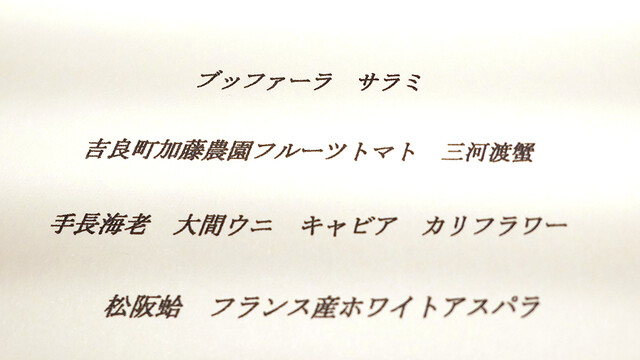 ブッファーラ　サラミ
吉良町加藤農園フルーツトマト　三河渡蟹
手長海老　大間ウニ　キャビア　カリフラワー
松阪蛤　フランス産ホワイトアスパラ